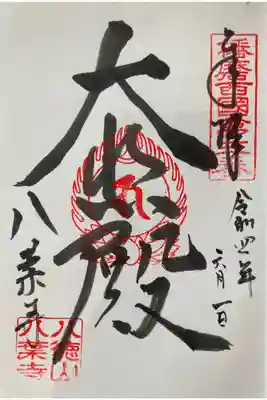 奉拝
令和四年
六月一日
大悲殿
八葉寺
八徳山
八葉寺